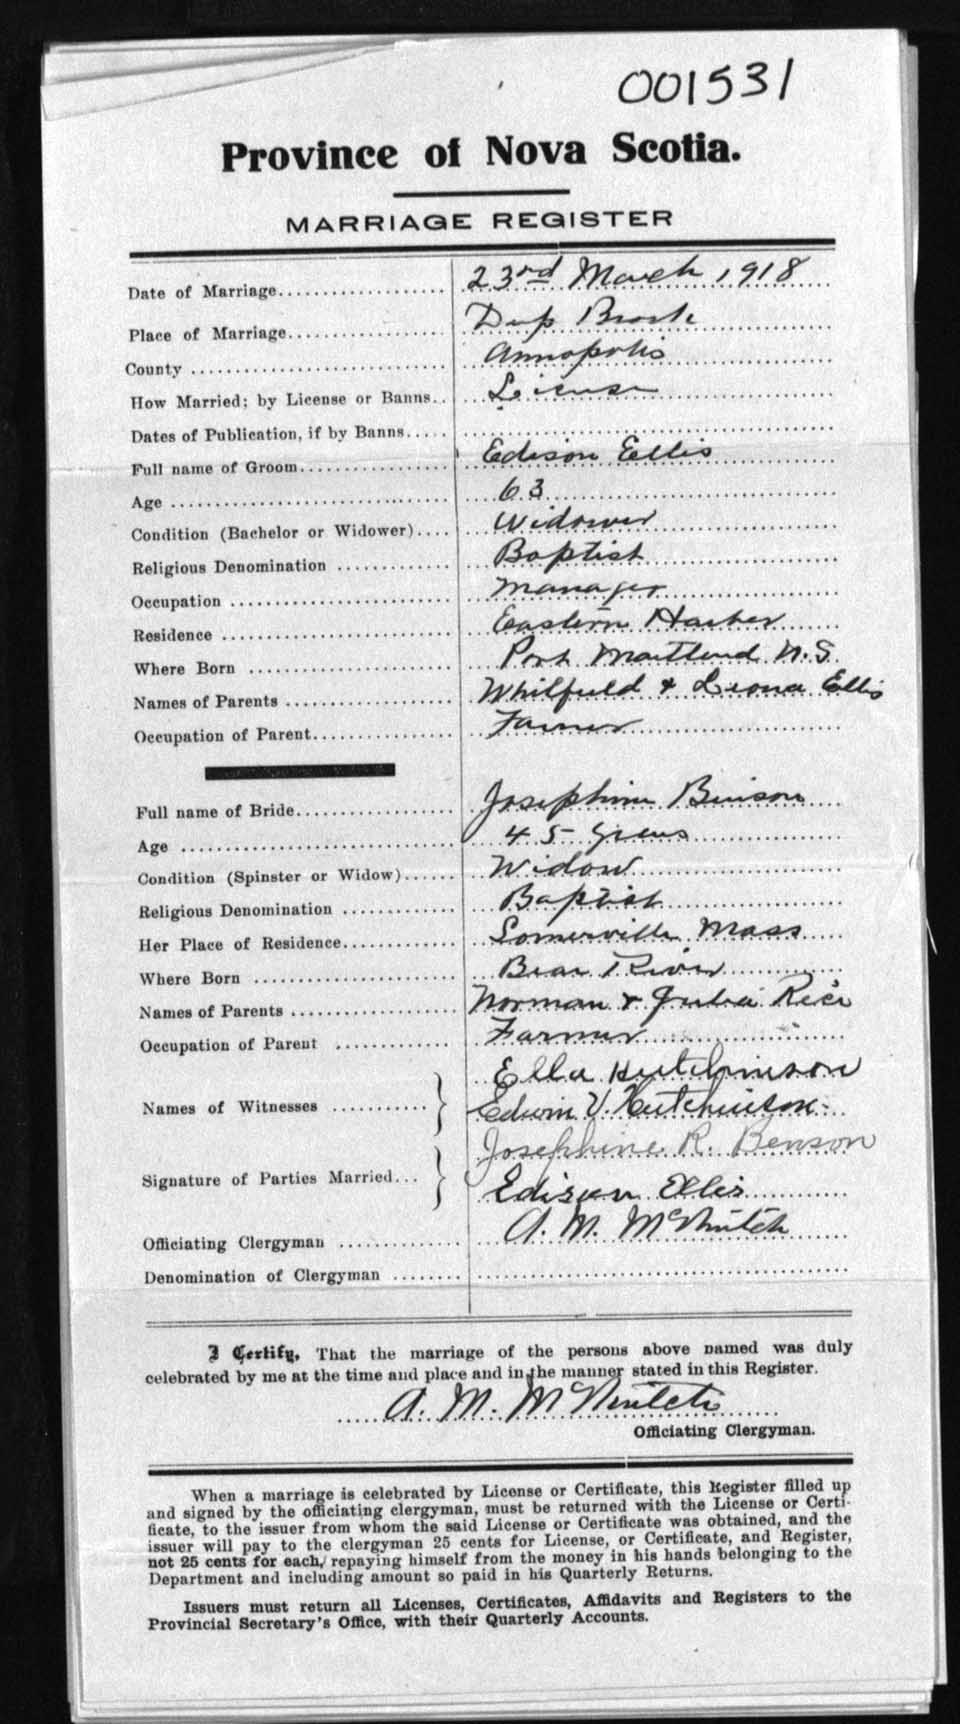 001531
Province of Nova Scotia.
MARRIAGE REGISTER
Date of Marriage.................... 23rd March 1918
Place of Marriage................... Deep Brook
County ............................. Annapolis
How Married; by License or Banns.. License
Dates of Publication, if by Banns.....
Full name of Groom.................. Edison Ellis
Age ................................ 63
Condition (Bachelor or Widower).... Widower
Religious Denomination ............. Baptist
Occupation ......................... Manager
Residence .......................... Eastern Harbor
Where Born ......................... Port Maitland N.S.
Names of Parents ................... Whilfield & Leona Ellis
Occupation of Parent................ Farmer
Full name of Bride.................. Josephine Benson
Age ................................ 45 years
Condition (Spinster or Widow)...... Widow
Religious Denomination ............. Baptist
Her Place of Residence............. Somerville Mass
Where Born ......................... Bear River
Names of Parents ................... Norman & Julia Rice
Occupation of Parent ............... Farmer
Ella Hutchinson
Names of Witnesses ........... } Edwin V. Hutchinson
Josephine R. Benson
Signature of Parties Married... } Edison Ellis
Officiating Clergyman .............. A. M. McNintch
Denomination of Clergyman ........
I Certify, That the marriage of the persons above named was duly
celebrated by me at the time and place and in the manner stated in this Register.
A. M. McNintch
Officiating Clergyman.
When a marriage is celebrated by License or Certificate, this Register filled up
and signed by the officiating clergyman, must be returned with the License or Certi-
ficate, to the issuer from whom the said License or Certificate was obtained, and the
issuer will pay to the clergyman 25 cents for License, or Certificate, and Register,
not 25 cents for each, repaying himself from the money in his hands belonging to the
Department and including amount so paid in his Quarterly Returns.
Issuers must return all Licenses, Certificates, Affidavits and Registers to the
Provincial Secretary's Office, with their Quarterly Accounts.